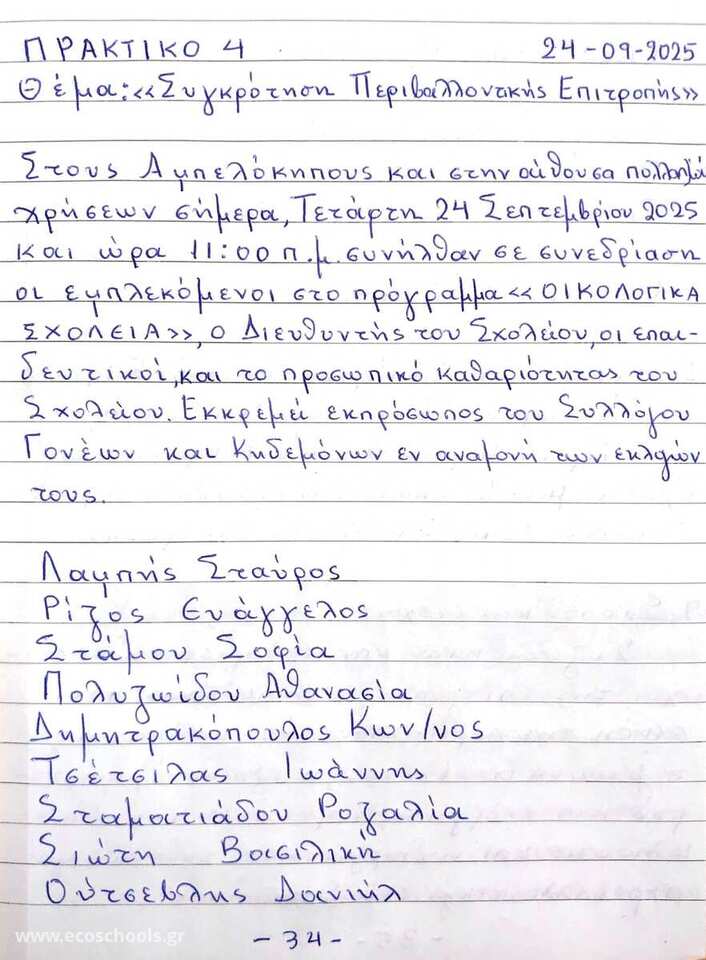 ΠΡΑΚΤΙΚΟ 4 24-09-2025
Θέμα: «Συγκρότηση Περιβαλλοντικής Επιτροπής»
Στους Αμπελόκηπους και στην αίθουσα πολλαπλών
χρήσεων σήμερα, Τετάρτη 24 Σεπτεμβρίου 2025
και ώρα 11:00 π.μ. συνήλθαν σε συνεδρίαση
οι εμπλεκόμενοι στο πρόγραμμα «ΟΙΚΟΛΟΓΙΚΑ
ΣΧΟΛΕΙΑ», ο Διευθυντής του Σχολείου, οι επαι-
δευτικοί, και το προσωπικό καθαριότητας του
Σχολείου. Εκκρεμεί εκπρόσωπος του Συλλόγου
Γονέων και Κηδεμόνων εν αναμονή των εκλογών
τους.
Λαμπής Σταύρος
Ρίζος Ευάγγελος
Στάμου Σοφία
Πολυζωίδου Αθανασία
Δημητρακόπουλος Κων/νος
Τσέτσιλας Ιωάννης
Σταματιάδου Ροζαλία
Σιώτη Βασιλική
Ούτσεβλης Δανιήλ
www.ecoschools.gr
- 34 -